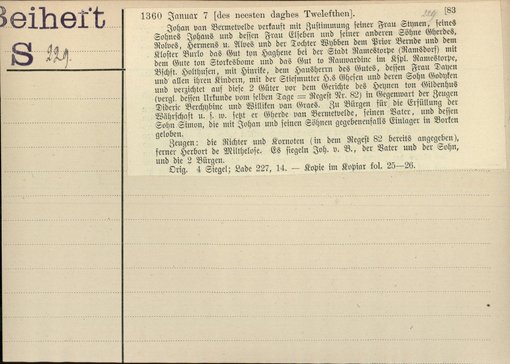 Beiheft
S 229
1360 Januar 7 [des neesten daghes Twelefthen]. [83
Johan van Vermetvelde verkauft mit Zustimmung seiner Frau Stynen, seines
Sohnes Johans und dessen Frau Elseben und seiner anderen Söhne Gherdes,
Rolves, Hermens u. Alves und der Tochter Wybben dem Prior Bernde und dem
Kloster Burlo das Gut ton Haghene bei der Stadt Ramestorpe (Ramsdorf) mit
dem Gute ton Storkeshome und das Gut to Nauwardinc im Kspl. Ramestorpe,
Bschft. Holthusen, mit Hinrike, dem Hausherrn des Gutes, dessen Frau Dayen
und allen ihren Kindern, mit der Stiefmutter H.s Ghesen und deren Sohn Godeken
und verzichtet auf diese 2 Güter vor dem Gerichte des Heynen ton Gildenhus
(vergl. dessen Urkunde vom selben Tage = Regest Nr. 82) in Gegenwart der Zeugen
Dideric Berchybinc und Willikin van Graes. Zu Bürgen für die Erfüllung der
Währschaft u. s. w. setzt er Gherde van Vermetvelde, seinen Vater, und dessen
Sohn Simon, die mit Johan und seinen Söhnen gegebenenfalls Einlager in Borken
geloben.
Zeugen: die Richter und Kornoten (in dem Regest 82 bereits angegeben),
ferner Herbort de Milthelose. Es siegeln Joh. v. V., der Vater und der Sohn,
und die 2 Bürgen.
Orig. 4 Siegel; Lade 227, 14. — Kopie im Kopiar fol. 25—26.